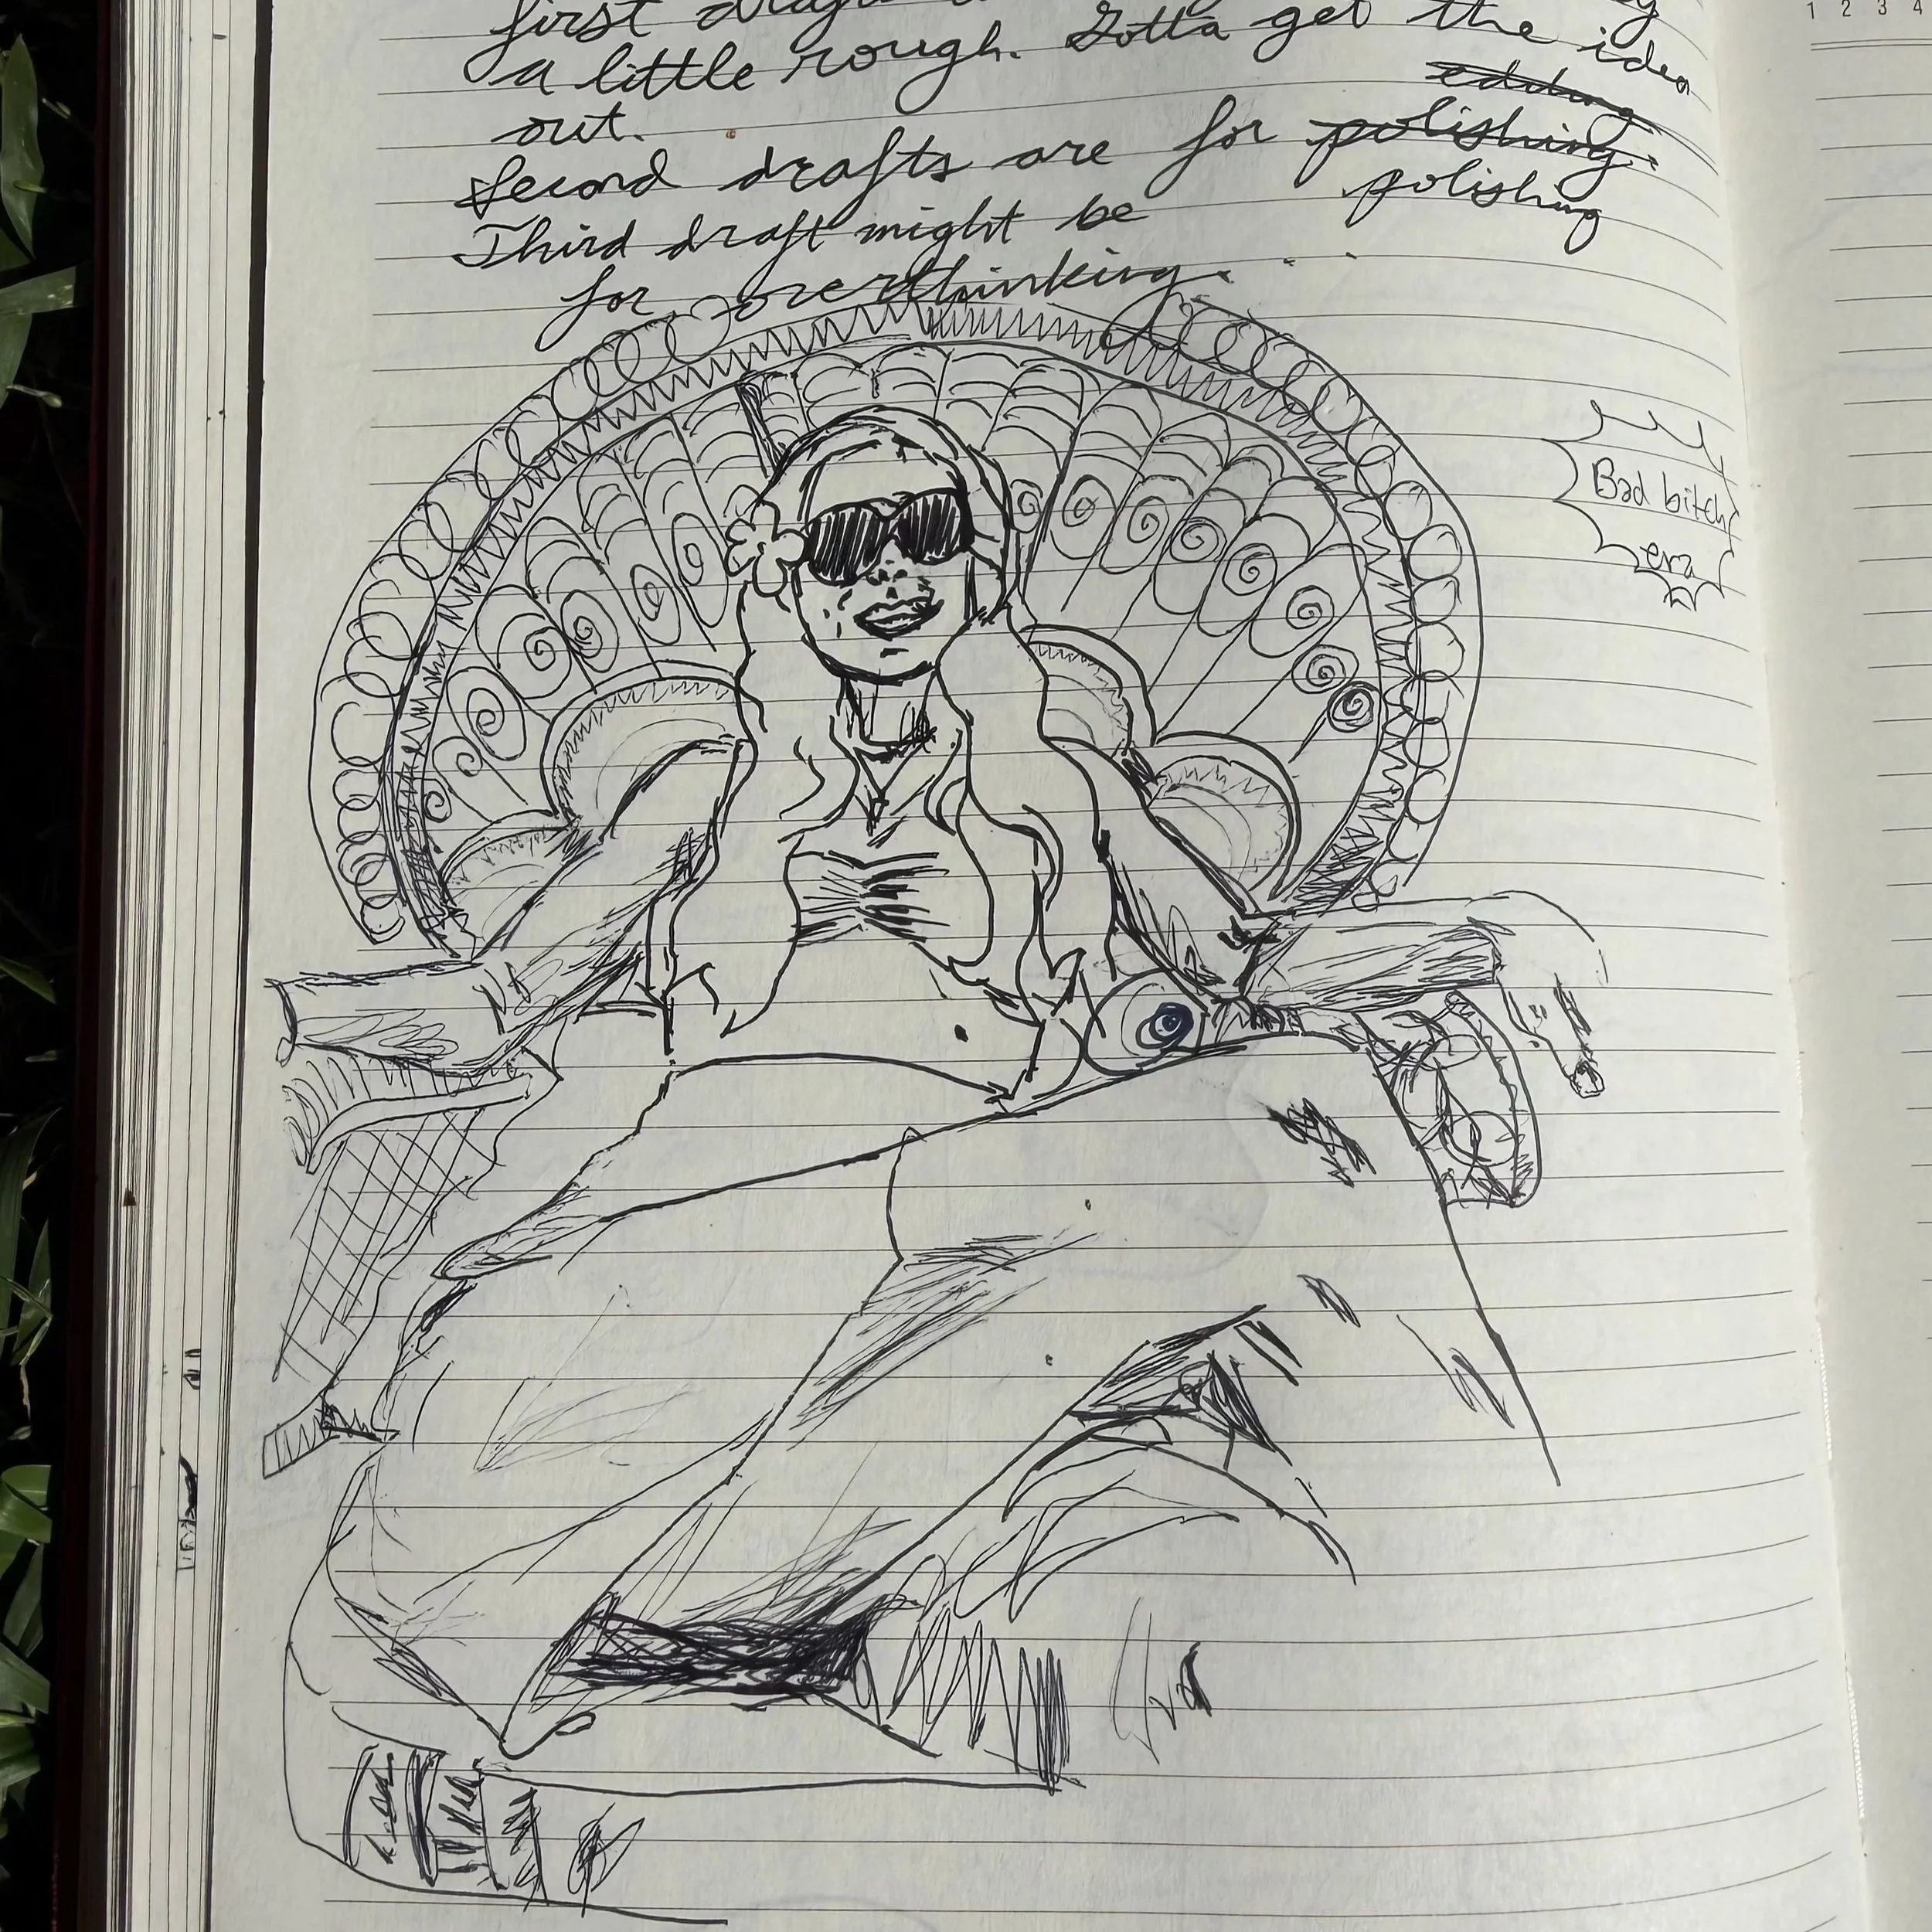 first
a little rough. Gotta get the idea
out.
editing
Second drafts are for polishing.
polishing
Third draft might be
for overthinking. . .
Bad bitch
era
1 2 3 4